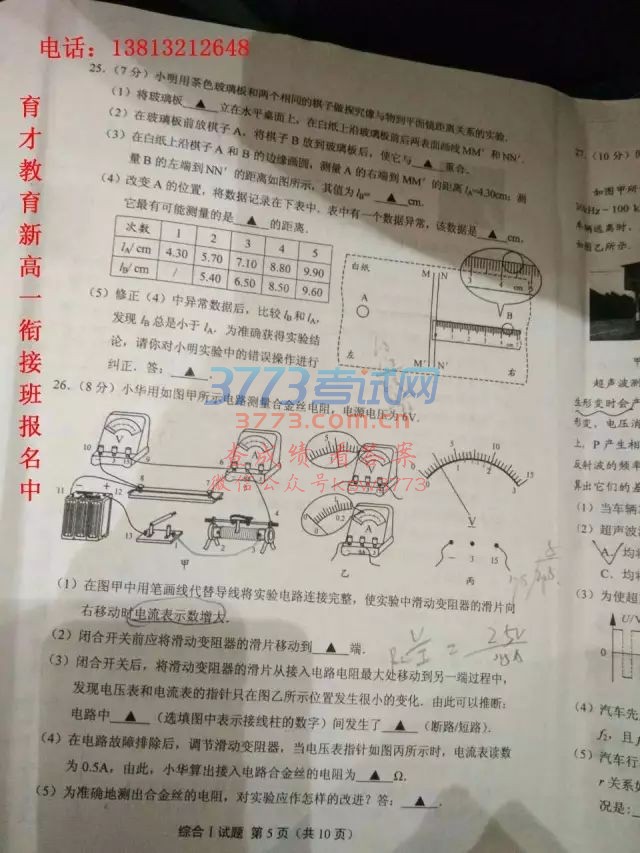 电话：13813212648
育才教育新高一衔接班报名中
25.（7 分）小明用茶色玻璃板和两个相同的棋子做探究像与物到平面镜距离关系的实验.
（1）将玻璃板 ▲ 立在水平桌面上，在白纸上沿玻璃板前后两表面画线 MM′ 和 NN′.
（2）在玻璃板前放棋子 A，将棋子 B 放到玻璃板后，使它与 ▲ 重合.
（3）在白纸上沿棋子 A 和 B 的边缘画圆，测量 A 的右端到 MM′ 的距离 lA=4.30cm；测
量 B 的左端到 NN′ 的距离如图所示，其值为 lB= ▲ cm.
（4）改变 A 的位置，将数据记录在下表中．表中有一个数据异常，该数据是 ▲ cm，
它最有可能测量的是 ▲ 的距离.
次数 1 2 3 4 5
lA/ cm 4.30 5.70 7.10 8.80 9.90
lB/ cm / 5.40 6.50 8.50 9.60
白纸 M N
A B
左 M′ N′ 右
（5）修正（4）中异常数据后，比较 lB 和 lA，
发现 lB 总是小于 lA．为准确获得实验结
论，请你对小明实验中的错误操作进行
纠正．答： ▲ .
3773考试网
3773.com.cn
查成绩 看答案
26.（8 分）小华用如图甲所示电路测量合金丝电阻，电源电压为 6V.
甲
乙
丙
− 3 15
（1）在图甲中用笔画线代替导线将实验电路连接完整，使实验中滑动变阻器的滑片向
右移动时电流表示数增大.
（2）闭合开关前应将滑动变阻器的滑片移动到 ▲ 端.
（3）闭合开关后，将滑动变阻器的滑片从接入电路电阻最大处移动到另一端过程中，
发现电压表和电流表的指针只在图乙所示位置发生很小的变化．由此可以推断：
电路中 ▲ （选填图中表示接线柱的数字）间发生了 ▲ （断路/短路）.
（4）在电路故障排除后，调节滑动变阻器，当电压表指针如图丙所示时，电流表读数
为 0.5A，由此，小华算出接入电路合金丝的电阻为 ▲ Ω.
（5）为准确地测出合金丝的电阻，对实验应作怎样的改进？答： ▲ .
综合 I 试题 第 5 页（共 10 页）
27.（10 分）
如图甲所
车辆远离时．
如图乙所示．
超声波测
生形变时会产
形变，电压消
上，P 产生相
反射波的频率
算出它们的差
（1）当车辆
（2）超声波
A．均将
C．均将
（3）为使超
U/V
0
（4）汽车先
（5）汽车行
r 关系如
况是：